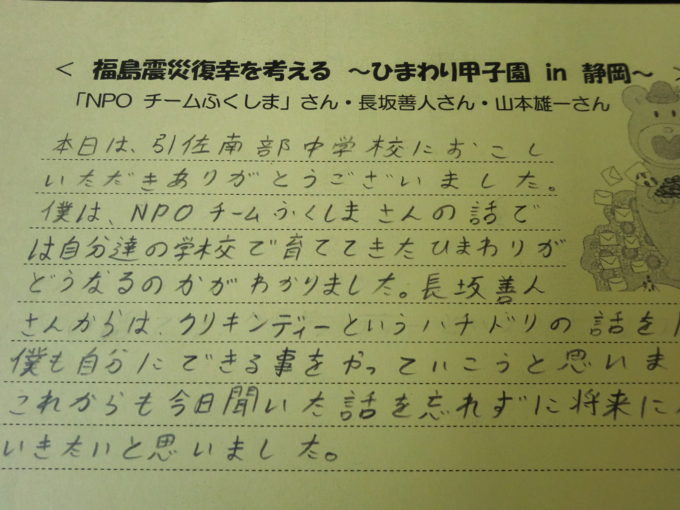 < 福島震災復幸を考える ～ひまわり甲子園 in 静岡～ >
「NPO チームふくしま」さん・長坂善人さん・山本雄一さん
本日は、引佐南部中学校におこし
いただきありがとうございました。
僕は、NPOチームふくしまさんの話で
は自分達の学校で育ててきたひまわりが
どうなるのかがわかりました。長坂善人
さんからは、クリキンディーというハチドリの話を
僕も自分にできる事をやっていこうと思いま
これからも今日聞いた話を忘れずに将来に
いきたいと思いました。